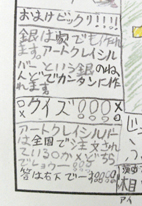 おまけビックリ!!!!
銀は家でも作れ
ます。アートクレイシル
バーという銀のねん
どでカンタンに作れ
ます
クイズ
アートクレイシルバー
は全国で注文され
ている○か×どちら
でしょう
答は右下で